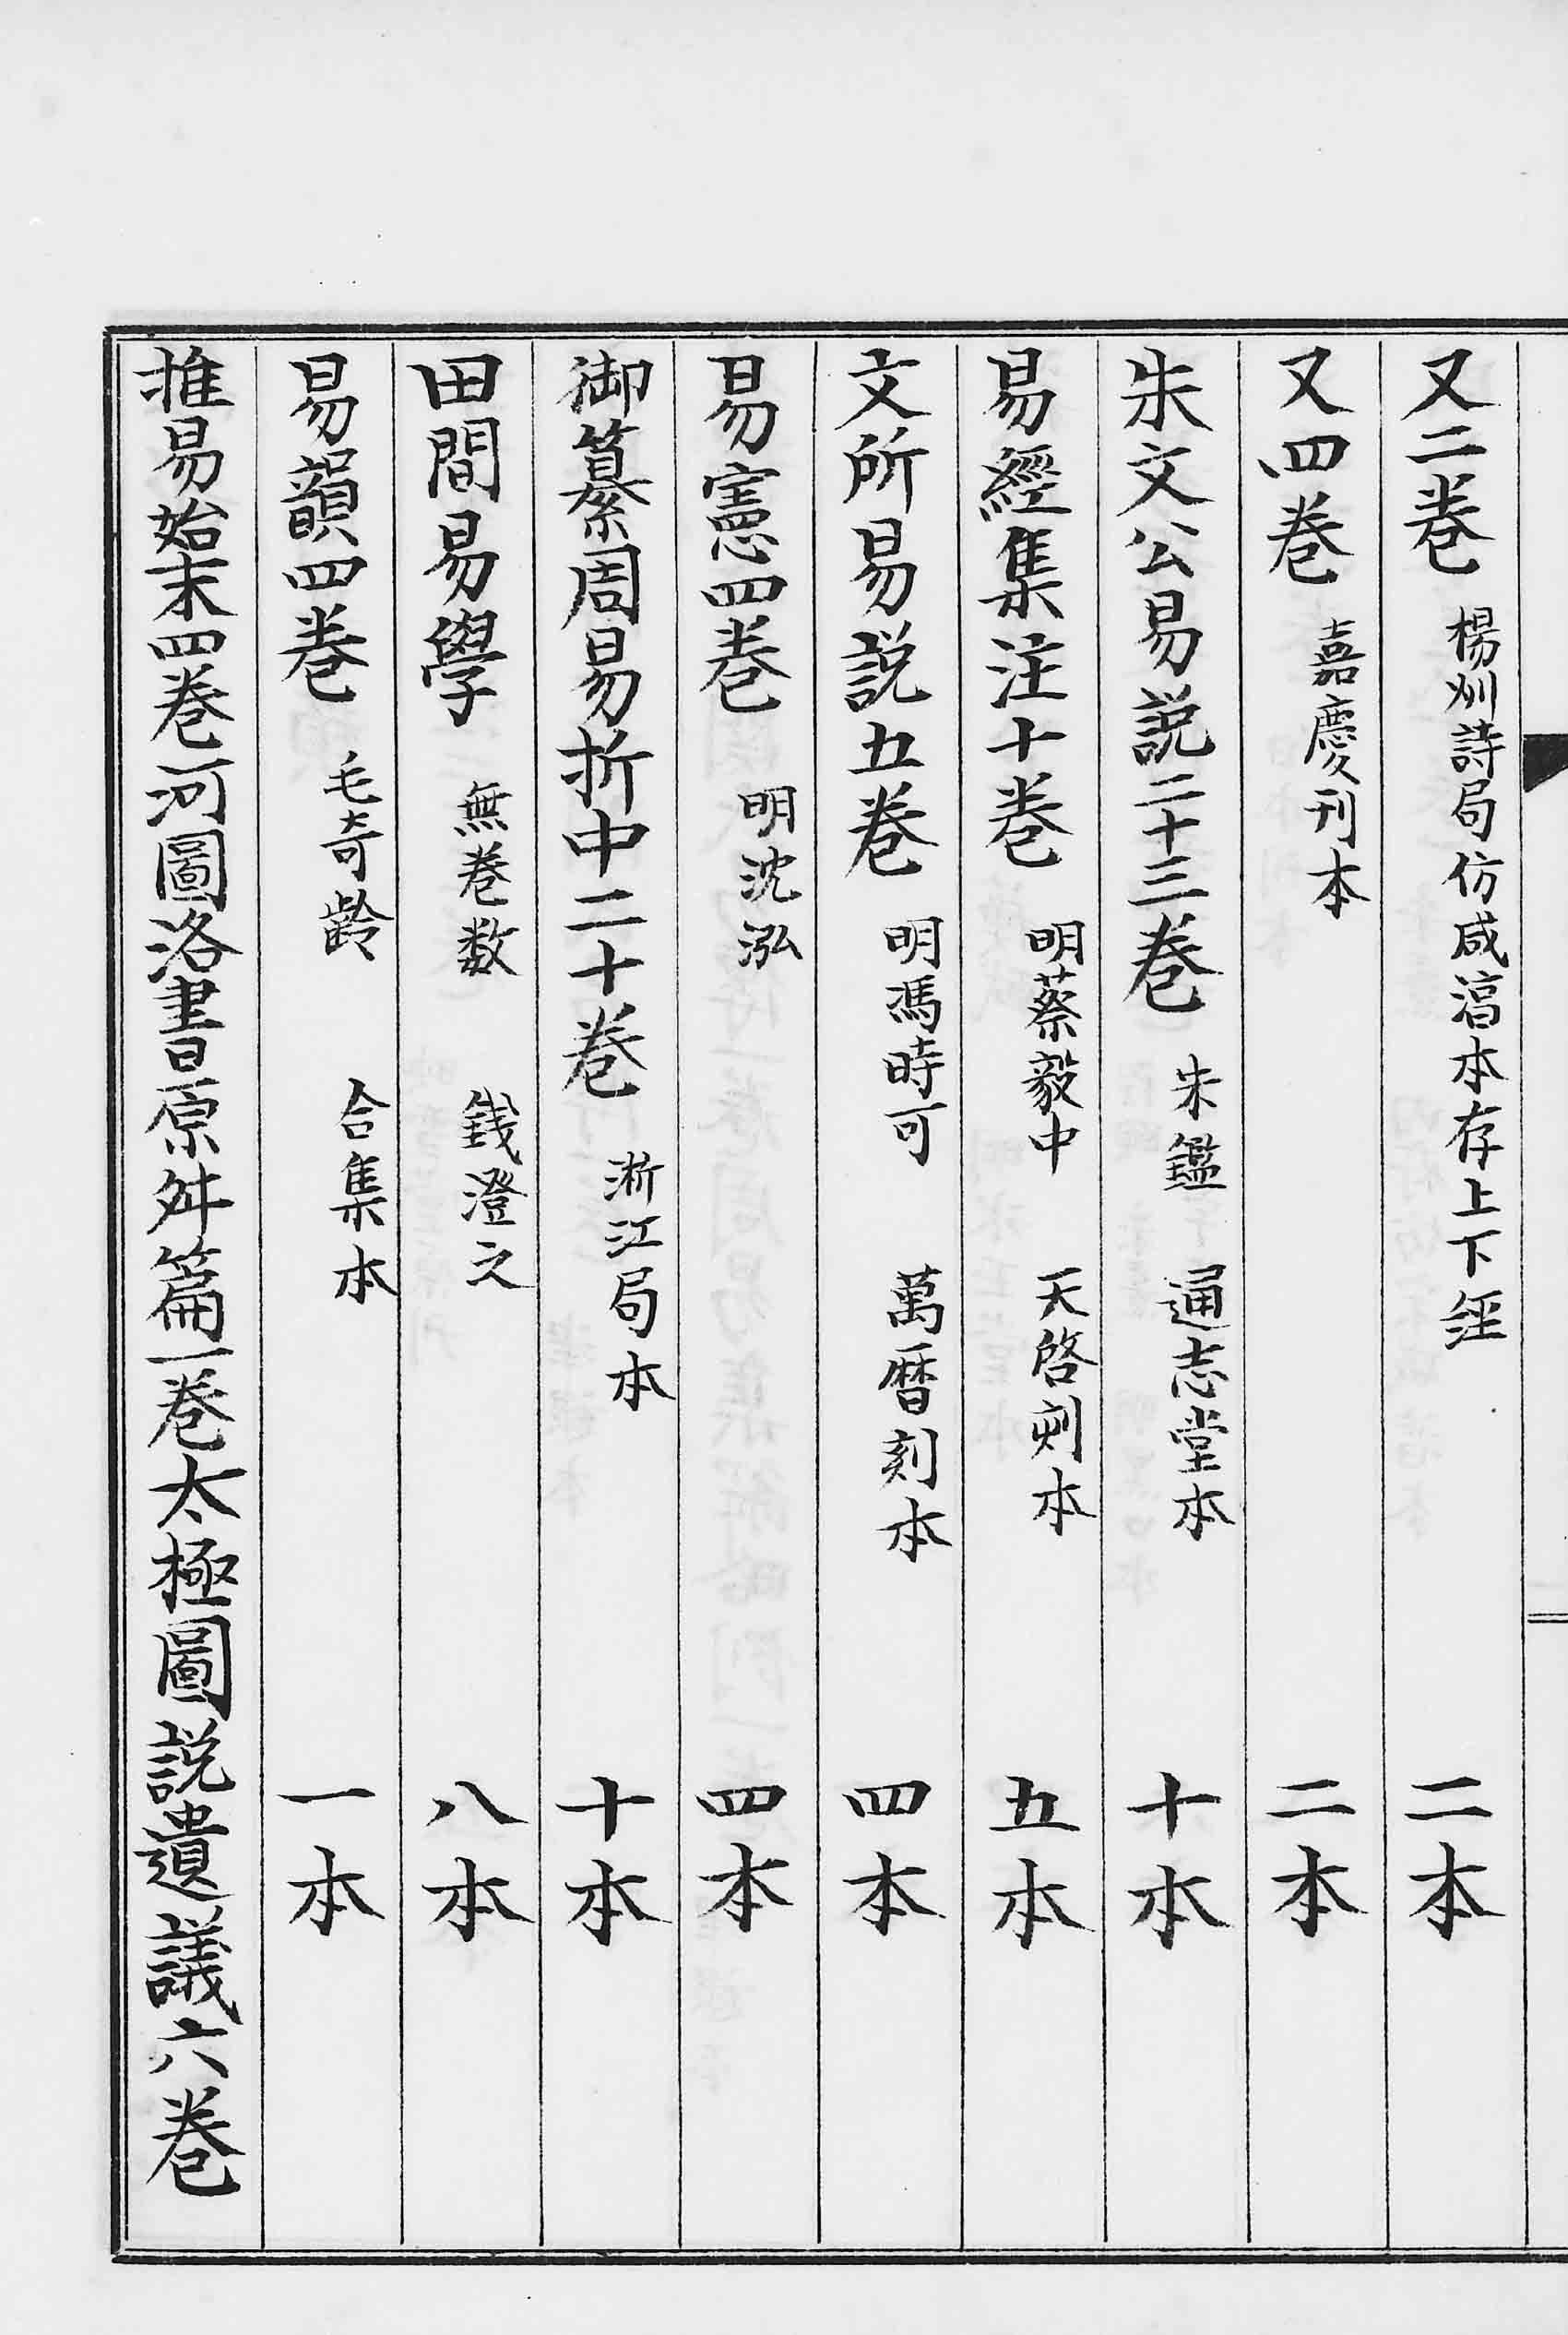 又二卷 楊州詩局仿咸淳本存上下經 二本
又四卷 嘉慶刊本 二本
朱文公易説二十三卷 朱鑑 通志堂本 十本
易經集注十卷 明蔡毅中 天啓刻本 五本
文所易説五卷 明馮時可 萬曆刻本 四本
易憲四卷 明沈泓 四本
御纂周易折中二十卷 淅江局本 十本
田間易學 無卷数 錢澄之 八本
易韻四卷 毛奇齡 合集本 一本
推易始末四卷河圖洛書原舛篇一卷太極圖説遺議六卷